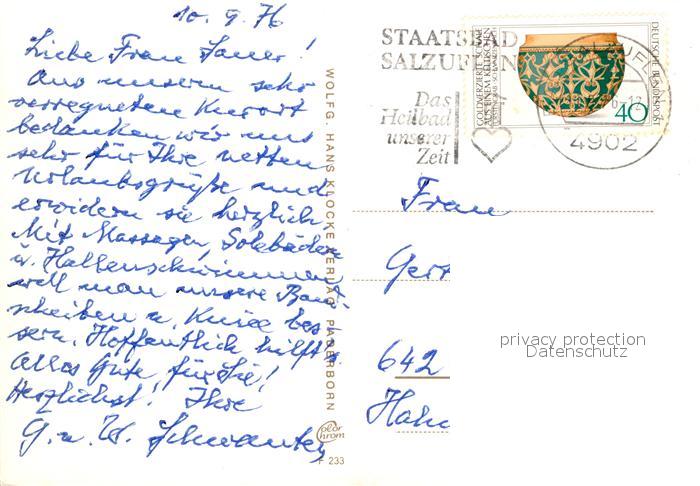 10. 9. 76
Liebe Frau Sauer!
Aus unserm sehr
verregneten Kurort
bedanken wir uns
sehr für Ihre netten
Urlaubsgrüße und
erwidern sie herzlich.
Mit Massagen, Solebädern
u. Hallenschwimmen
will man unsere Band-
scheiben u. Kniee bes-
sern. Hoffentlich hilft's.
Alles Gute für Sie!
Herzlichst! Ihre
G. u. W.
WOLFG. HANS KLOCKE VERLAG PADERBORN
color
chrom
F 233
STAATSBAD
SALZUFLEN
Das
Heilbad
unserer
Zeit
DEUTSCHE BUNDESPOST
40
4902
Frau
Gerr
642
Hahn
privacy protection
Datenschutz